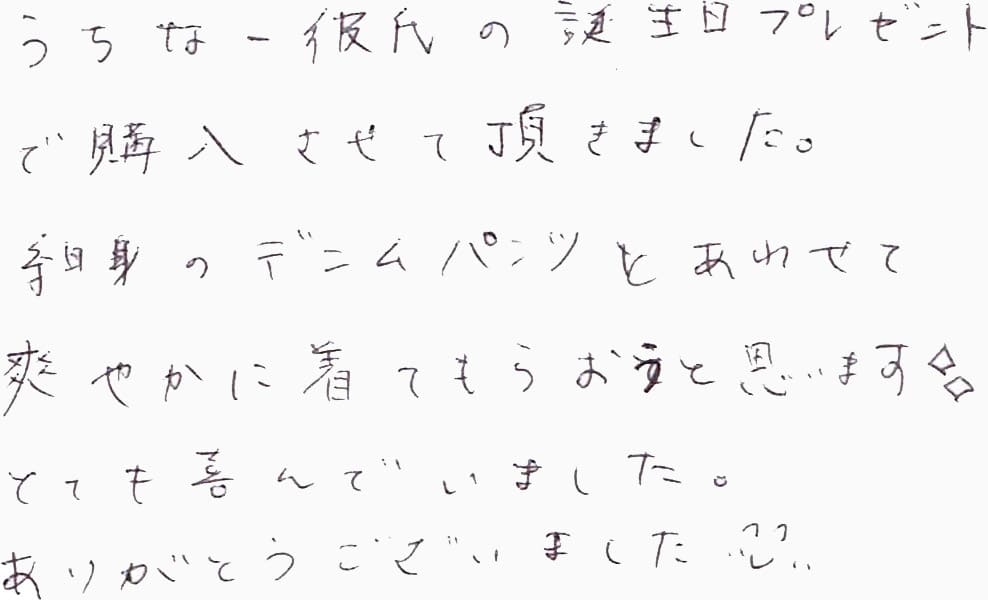 うちなー彼氏の誕生日プレゼント
で購入させて頂きました。
細身のデニムパンツとあわせて
爽やかに着てもらおうと思います
とても喜んでいました。
ありがとうございました